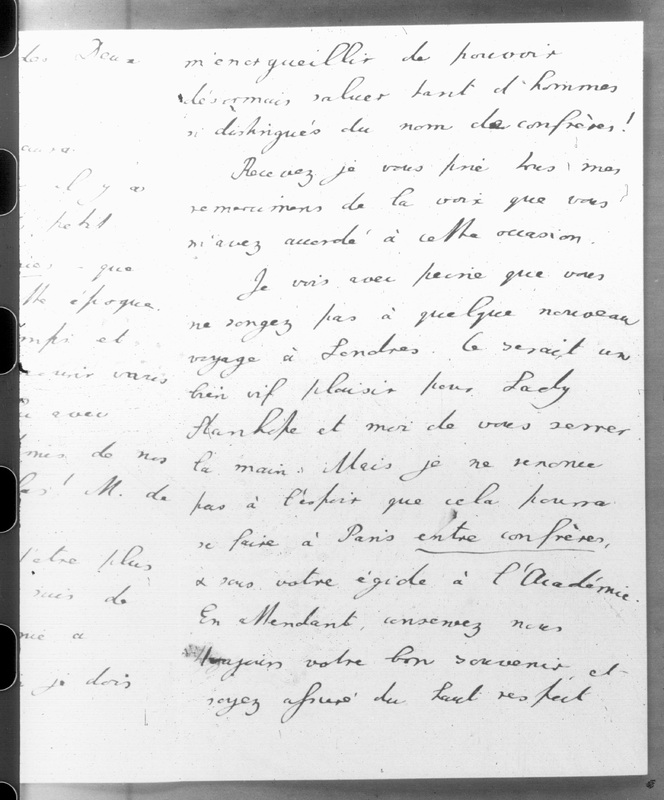 des Deux
il y a
petit
que
époque.
et
avec
de nos
! M. de
être plus
suis de
a
je dois
m'enorgueillir de pouvoir
désormais saluer tant d'hommes
si distingués du nom de confrères !
Recevez je vous prie tous mes
remercimens de la voix que vous
m'avez accordé à cette occasion.
Je vois avec peine que vous
ne songez pas à quelque nouveau
voyage à Londres. Ce serait un
bien vif plaisir pour Lady
Stanhope et moi de vous serrer
la main : Mais je ne renonce
pas à l'espoir que cela pourra
se faire à Paris entre confrères,
& sous votre égide à l'Académie.
En attendant, conservez nous
toujours votre bon souvenir, et
soyez assuré du haut respect